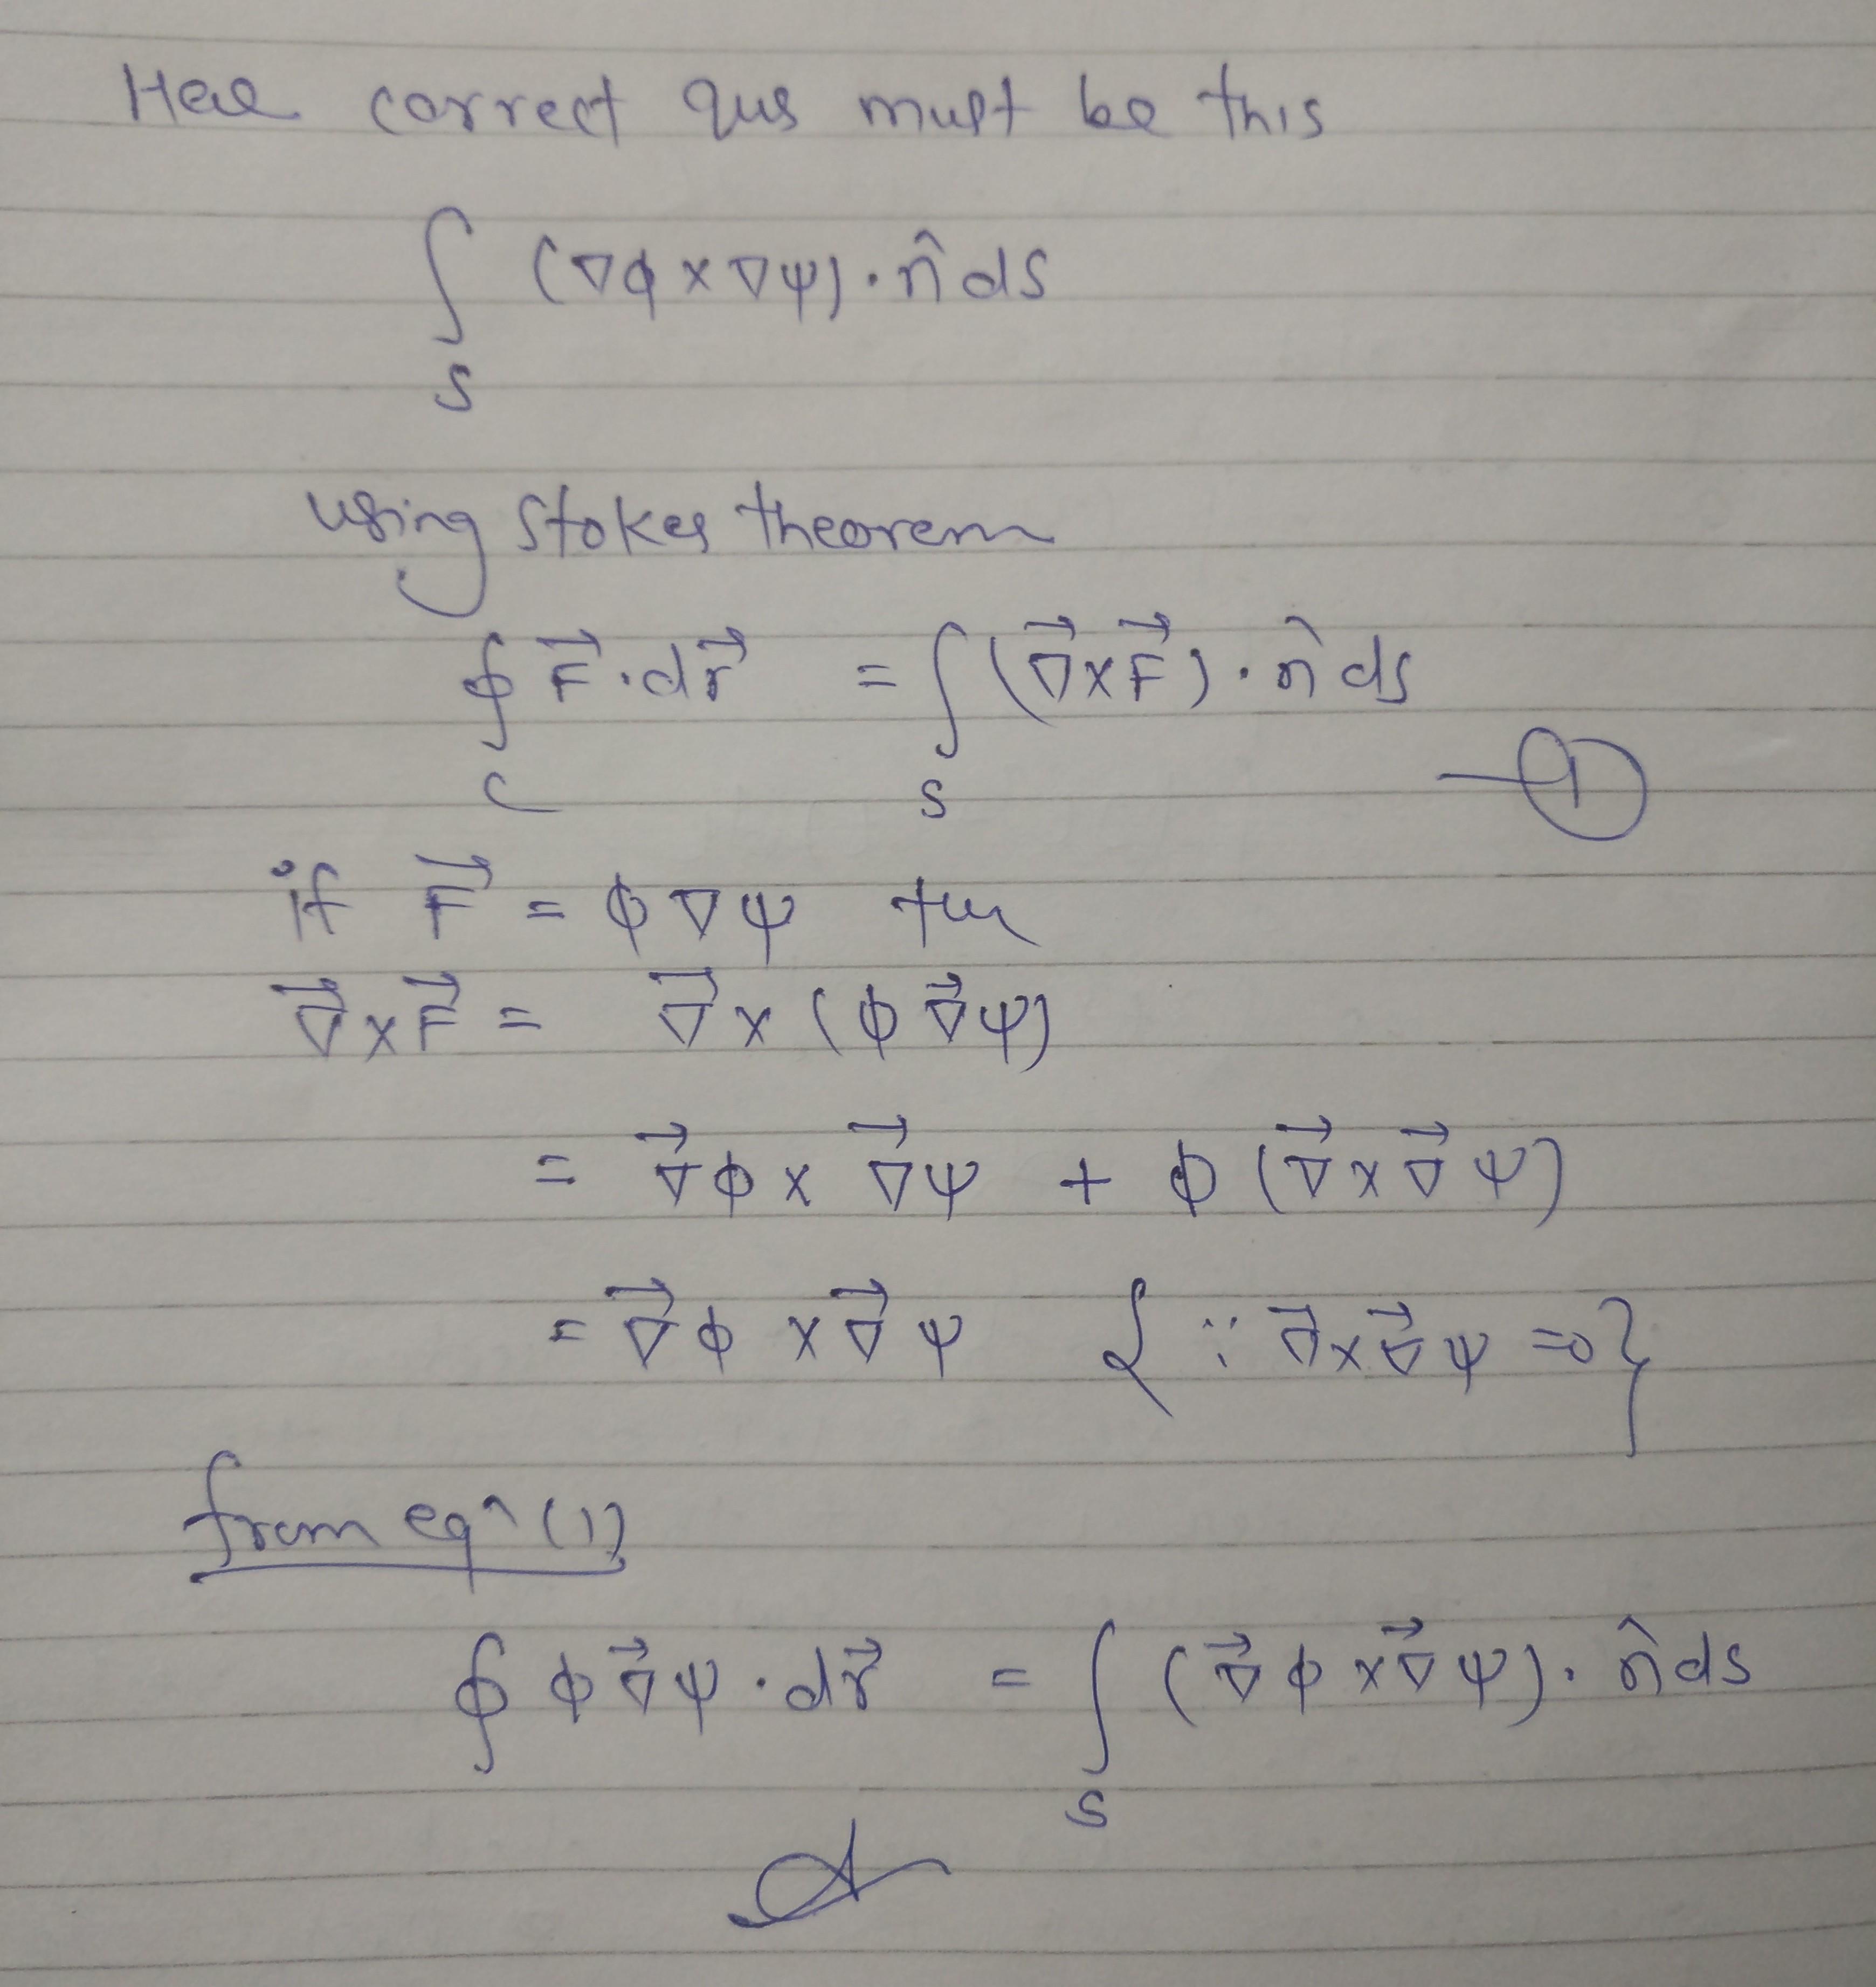 Here correct qus must be this
∫ (∇ϕ × ∇ψ) · n̂ ds
S
using Stokes theorem
∮ F⃗ · dr⃗ = ∫ (∇⃗ × F⃗) · n̂ ds
C S
— ①
if F⃗ = ϕ ∇ψ then
∇⃗ × F⃗ = ∇⃗ × (ϕ ∇⃗ψ)
= ∇⃗ϕ × ∇⃗ψ + ϕ (∇⃗ × ∇⃗ψ)
= ∇⃗ϕ × ∇⃗ψ { ∵ ∇⃗ × ∇⃗ψ = 0 }
from eqⁿ (1)
∮ ϕ ∇⃗ψ · dr⃗ = ∫ (∇⃗ϕ × ∇⃗ψ) · n̂ ds
S